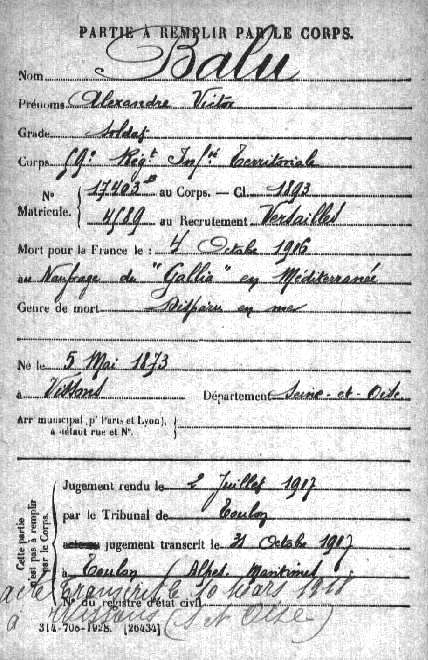 PARTIE À REMPLIR PAR LE CORPS.
Nom Balu
Prénoms Alexandre Victor
Grade Soldat
Corps 59e Régt Infie Territoriale
N° Matricule. 17403 B au Corps. — Cl. 1893
4589 au Recrutement Versailles
Mort pour la France le : 4 Octobre 1916
au Naufrage du "Gallia" en Méditerranée
Genre de mort Disparu en mer
Né le 5 Mai 1873
à Vissous Département Seine-et-Oise
Arr municipal (pr Paris et Lyon), à défaut rue et N°.
Cette partie n'est pas à remplir par le Corps.
Jugement rendu le 2 Juillet 1917
par le Tribunal de Toulon
jugement transcrit le 31 Octobre 1917
à Toulon (Alpes Maritimes
acte transcrit le 10 Mars 1918
N° du registre d'état civil
à Wissous (S et Oise)
314-708-1928. [26434]